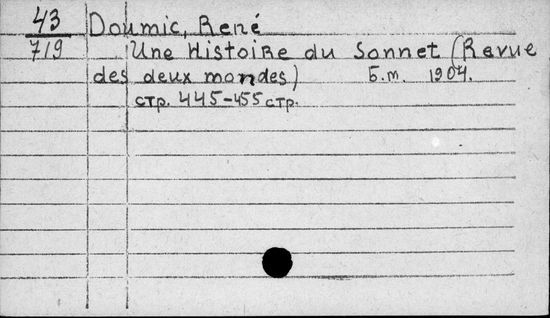 43 Doumic, René
719 Une Histoire du Sonnet (Revue
des deux mondes) Б.м. 1904.
стр. 445-455 стр.